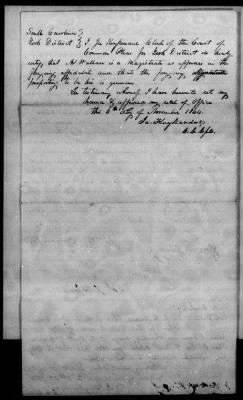 South Carolina }
York District } I Jn Kuykendal Clerk of the Court of
Common Pleas for York District do hereby
certify that A Wallace is a Magistrate as appears in the
foregoing affidavit and that the foregoing signature
purporting to be his is genuine
In testimony whereof I have hereunto set my
hand & affixed my seal of Office
this 6th day of November 1844
Jn Kuykendal